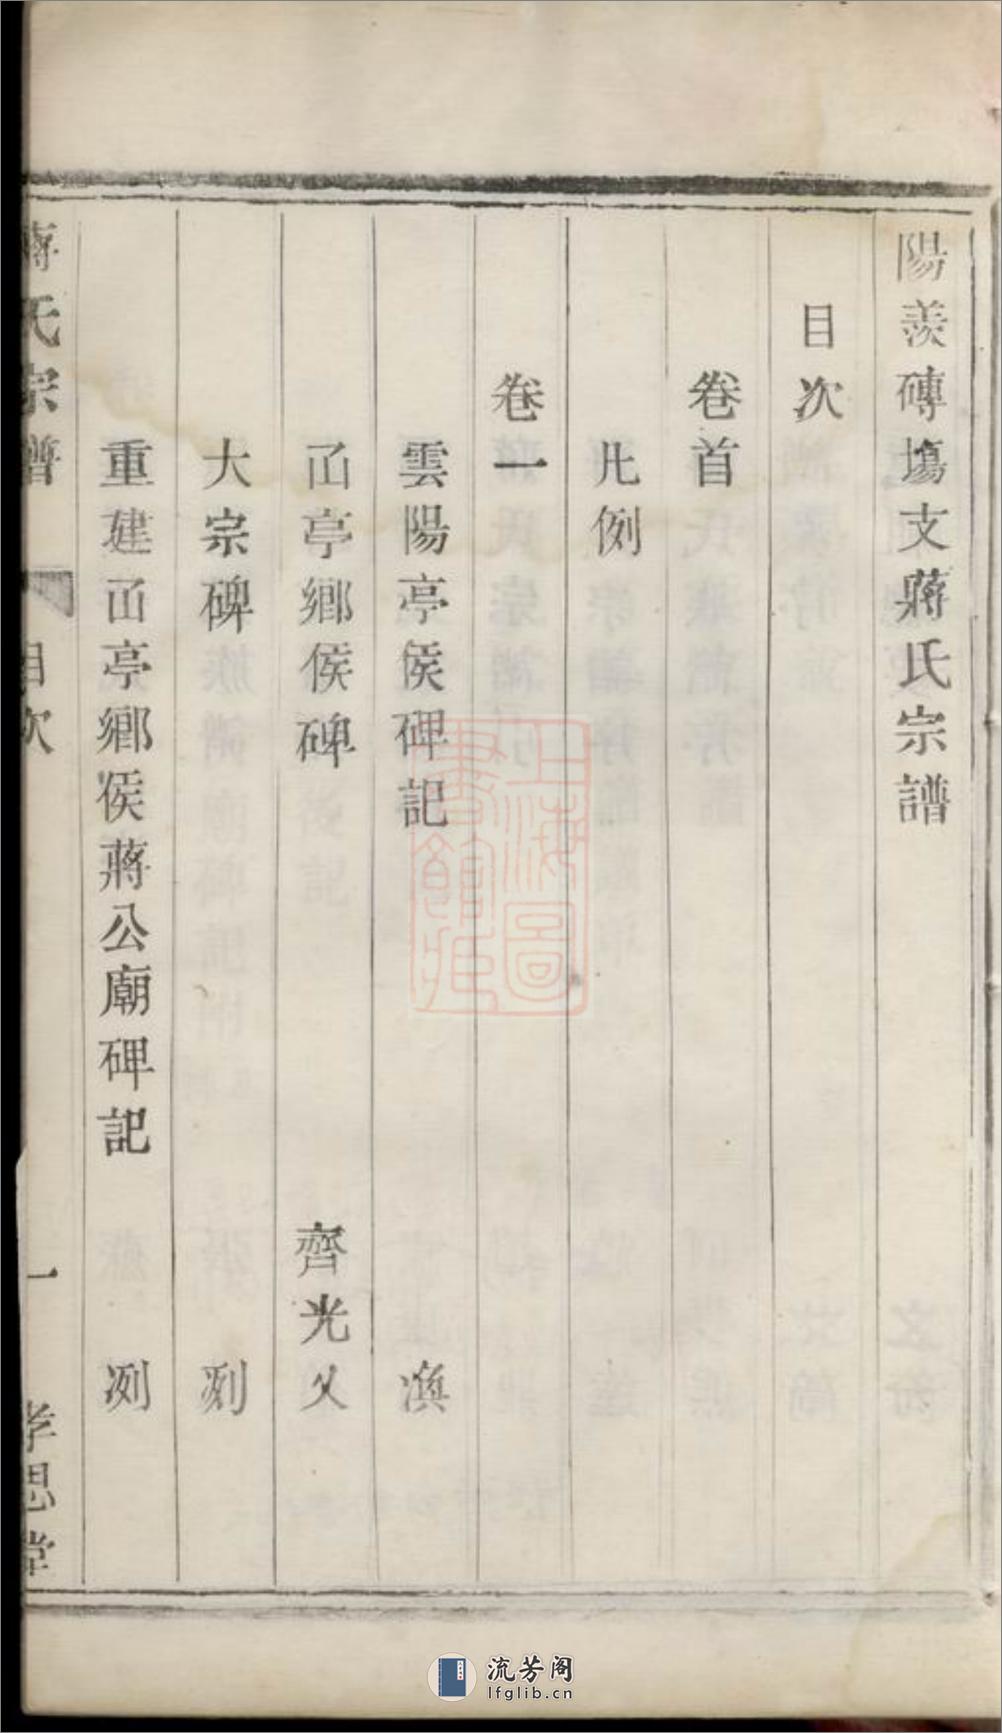 陽羨磚塲支蔣氏宗譜
目次
卷首
凡例
卷一
雲陽亭侯碑記 滇
凾亭鄉侯碑 齊光乂
大宗碑 冽
重建凾亭鄉侯蔣公廟碑記 冽
蔣氏宗譜 目次 一 孝思堂
上海圖書館藏
流芳阁
lfglib.cn